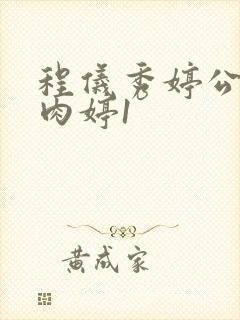 程仪秀婷公
肉婷1
黄成家